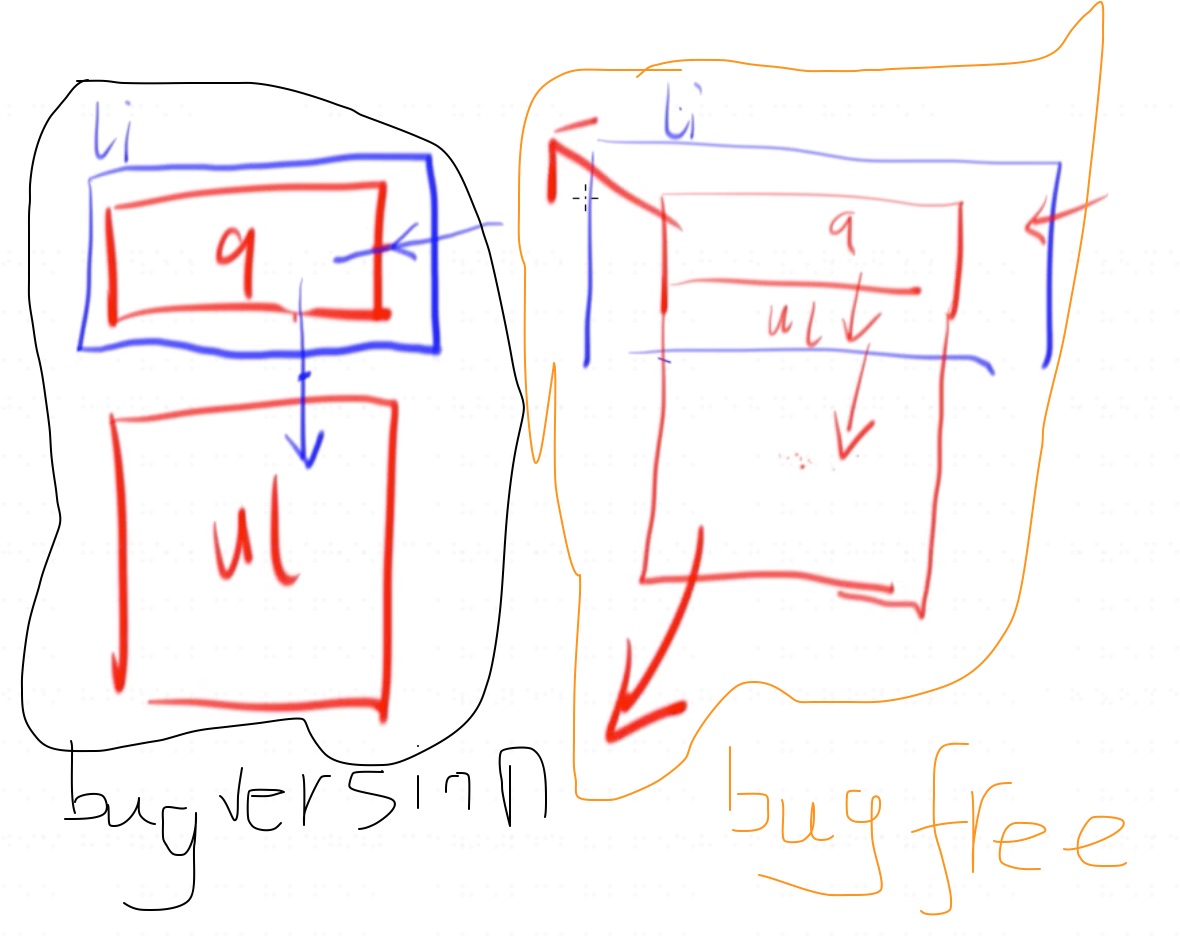 li
q
ul
bug versin
li
q
ul
bug free